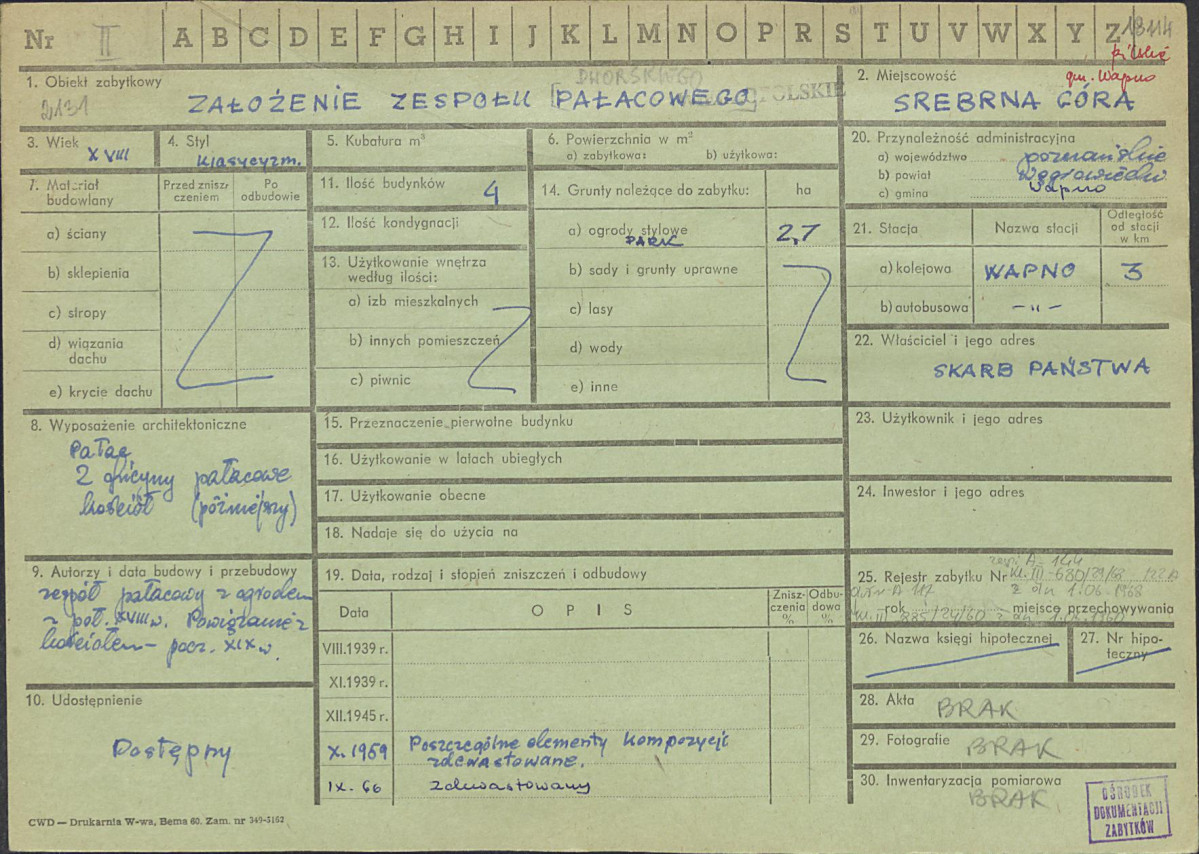 Nr II A B C D E F G H I J K L M N O P R S T U V W X Y Z 13114
pilskie
gm. Wapno
1. Obiekt zabytkowy
2131
DWORSKIEGO
ZAŁOŻENIE ZESPOŁU [PAŁACOWEGO]
2. Miejscowość
SREBRNA GÓRA
3. Wiek
XVIII
4. Styl
klasycyzm.
5. Kubatura m³
6. Powierzchnia w m²
a) zabytkowa: b) użytkowa:
20. Przynależność administracyjna
a) województwo poznańskie
b) powiat Wągrowiecki
c) gmina Wapno
7. Materiał budowlany
Przed zniszczeniem
Po odbudowie
a) ściany
b) sklepienia
c) stropy
d) wiązania dachu
e) krycie dachu
11. Ilość budynków 4
12. Ilość kondygnacji
13. Użytkowanie wnętrza
według ilości:
a) izb mieszkalnych
b) innych pomieszczeń
c) piwnic
14. Grunty należące do zabytku: ha
a) ogrody stylowe 2,7
PARK
b) sady i grunty uprawne
c) lasy
d) wody
e) inne
21. Stacja Nazwa stacji Odległość od stacji w km
a) kolejowa WAPNO 3
b) autobusowa – " –
22. Właściciel i jego adres
SKARB PAŃSTWA
8. Wyposażenie architektoniczne
Pałac
2 oficyny pałacowe
kościół (późniejszy)
15. Przeznaczenie pierwotne budynku
16. Użytkowanie w latach ubiegłych
17. Użytkowanie obecne
18. Nadaje się do użycia na
23. Użytkownik i jego adres
24. Inwestor i jego adres
9. Autorzy i data budowy i przebudowy
zespół pałacowy z ogrodem
z poł. XVIII w. Powiązanie z
kościołem – pocz. XIX w.
19. Data, rodzaj i stopień zniszczeń i odbudowy
Data OPIS Zniszczenia % Odbudowa %
VIII.1939 r.
XI.1939 r.
XII.1945 r.
X. 1959 Poszczególne elementy kompozycji
zdewastowane.
IX. 66 zdewastowany
A-144
25. Rejestr zabytku Nr kl. III-680/29/68
z dn 1.06.1968
A 117
rok miejsce przechowywania
kl. III 885/24/60 z dn
26. Nazwa księgi hipotecznej
27. Nr hipoteczny
10. Udostępnienie
Dostępny
28. Akta BRAK
29. Fotografie BRAK
30. Inwentaryzacja pomiarowa
BRAK
OŚRODEK
DOKUMENTACJI
ZABYTKÓW
CWD — Drukarnia W-wa, Bema 60. Zam. nr 349-5162